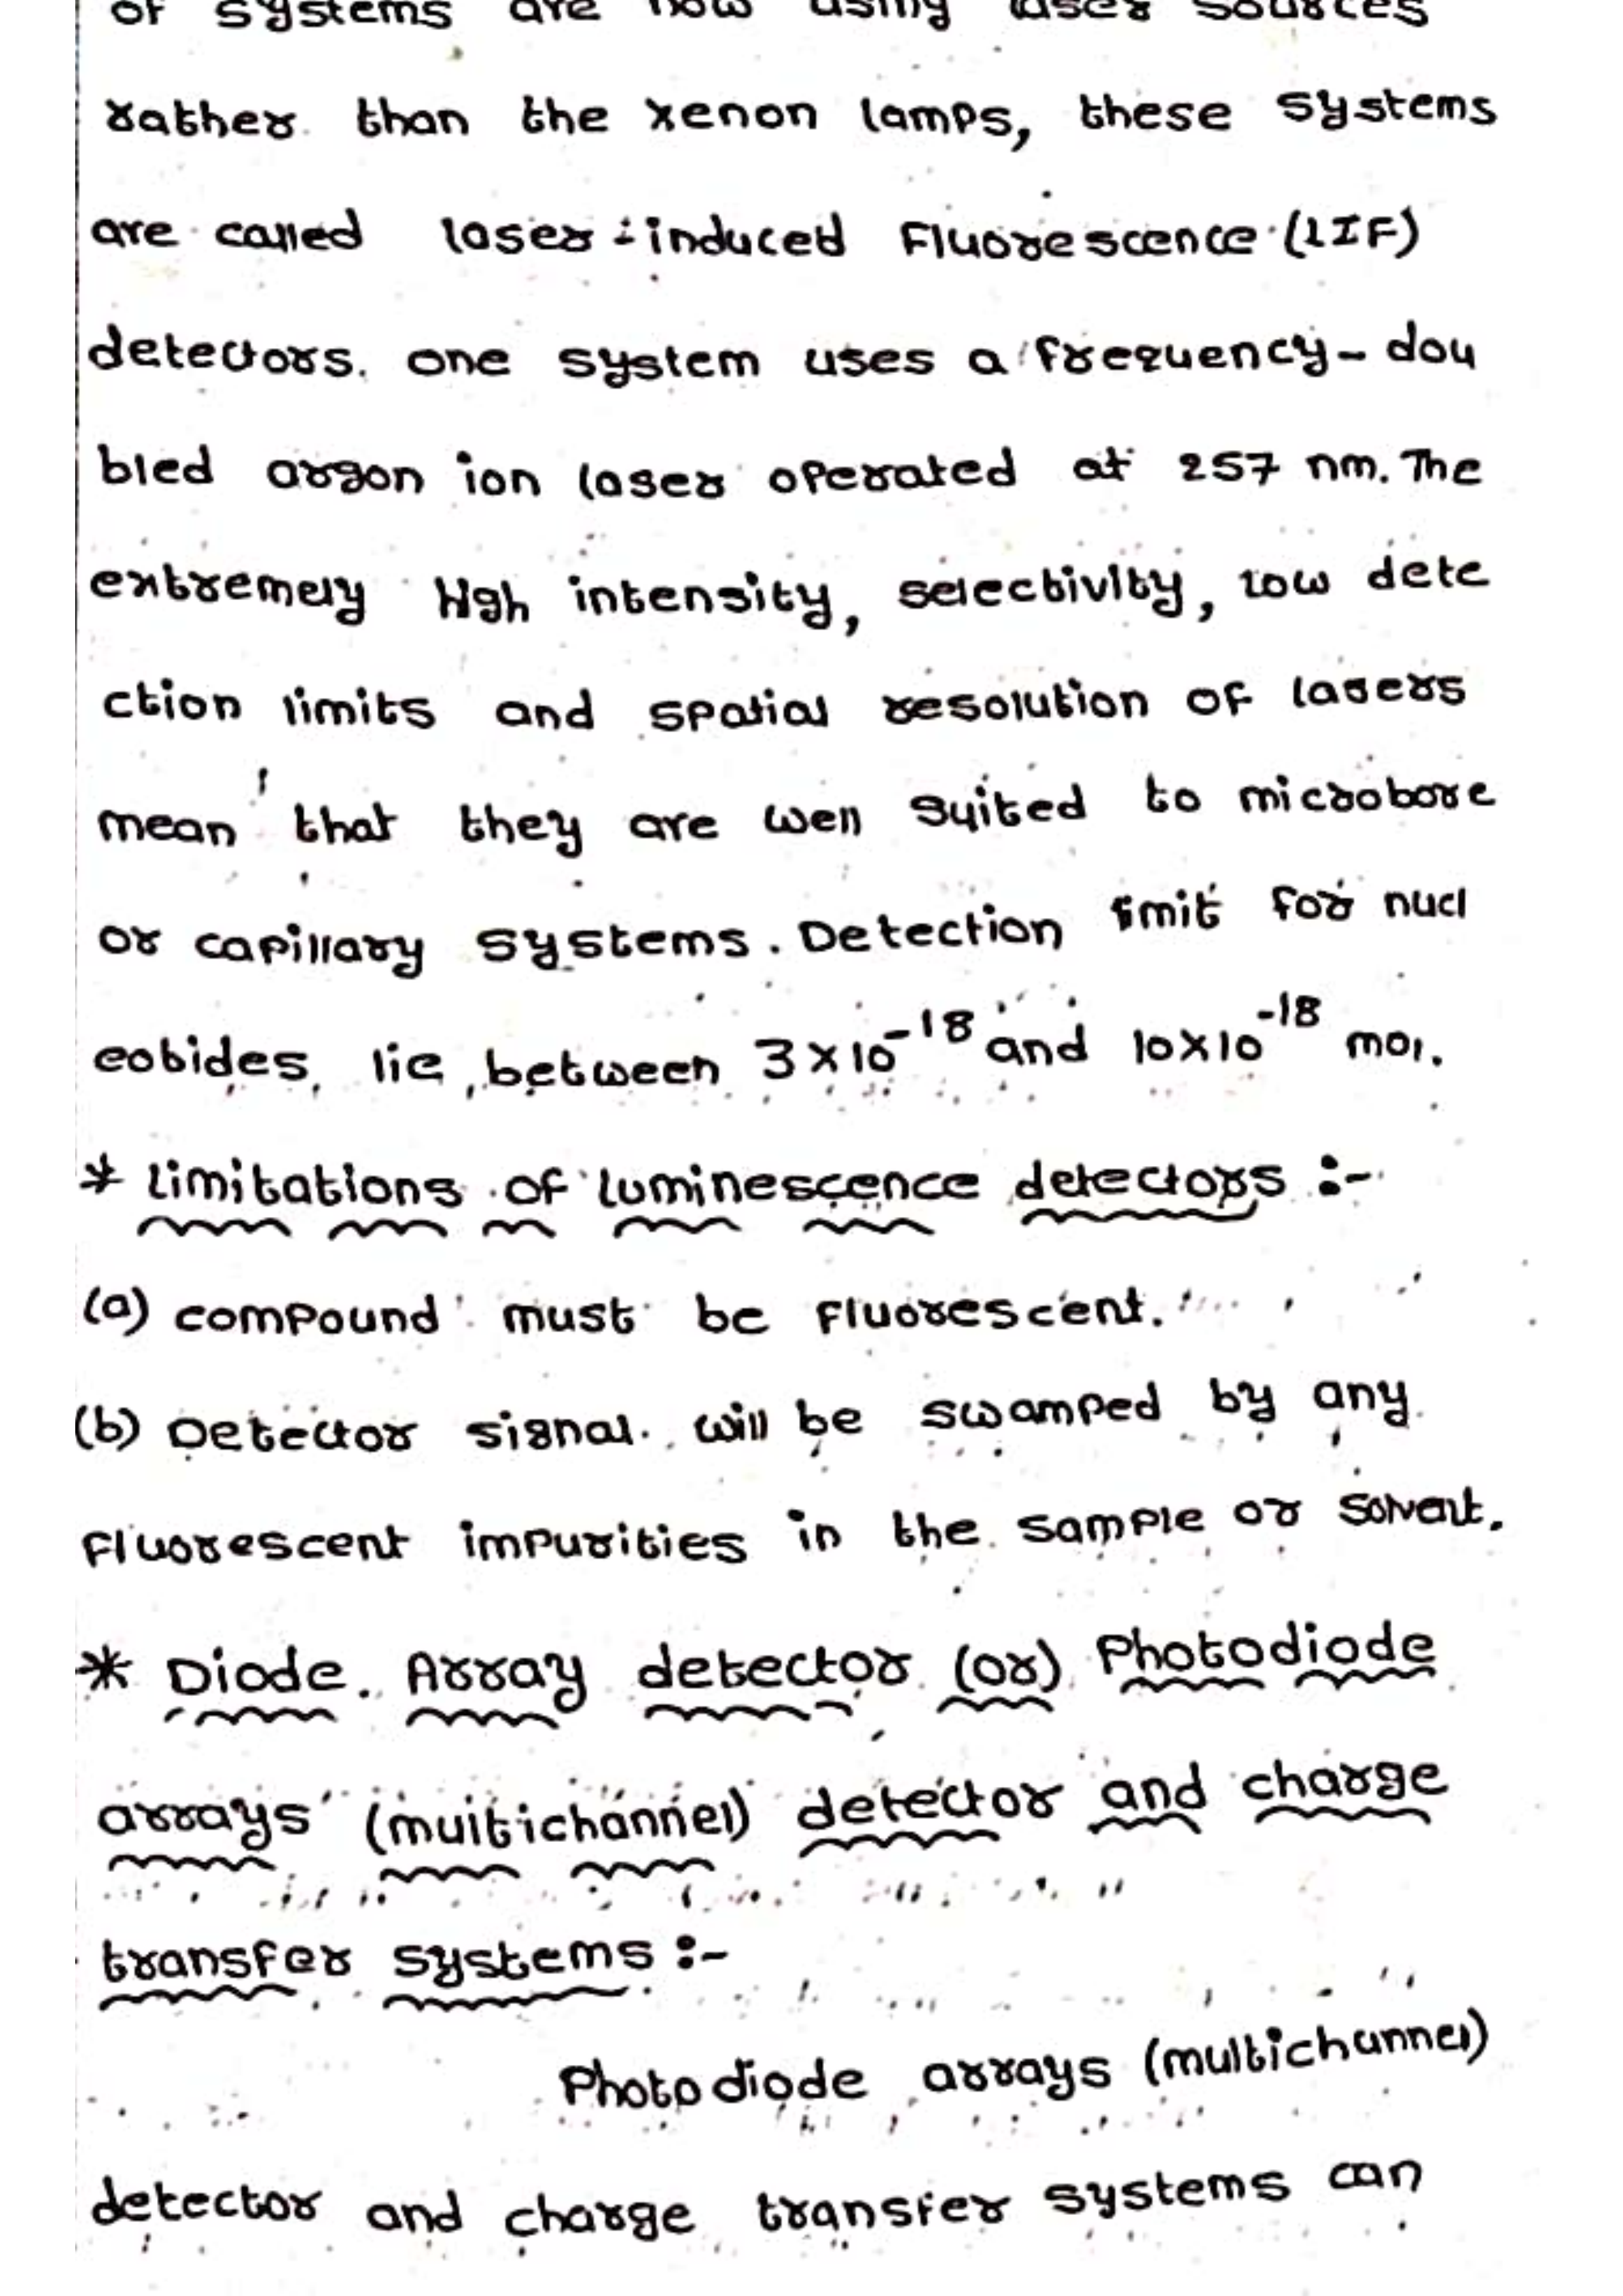 of systems are now using laser sources
rather than the xenon lamps, these systems
are called laser-induced Fluorescence (LIF)
detectors. one system uses a frequency-dou
bled argon ion laser operated at 257 nm. The
extremely High intensity, selectivity, low dete
ction limits and spatial resolution of lasers
mean that they are well suited to microbore
or capillary systems. Detection limit for nucl
eotides, lie, between 3×10⁻¹⁸ and 10×10⁻¹⁸ mol.
* Limitations of luminescence detectors :-
(a) compound must be fluorescent.
(b) Detector signal will be swamped by any
fluorescent impurities in the sample or solvent.
* Diode Array detector (or) Photodiode
arrays (multichannel) detector and charge
transfer systems :-
Photodiode arrays (multichannel)
detector and charge transfer systems can